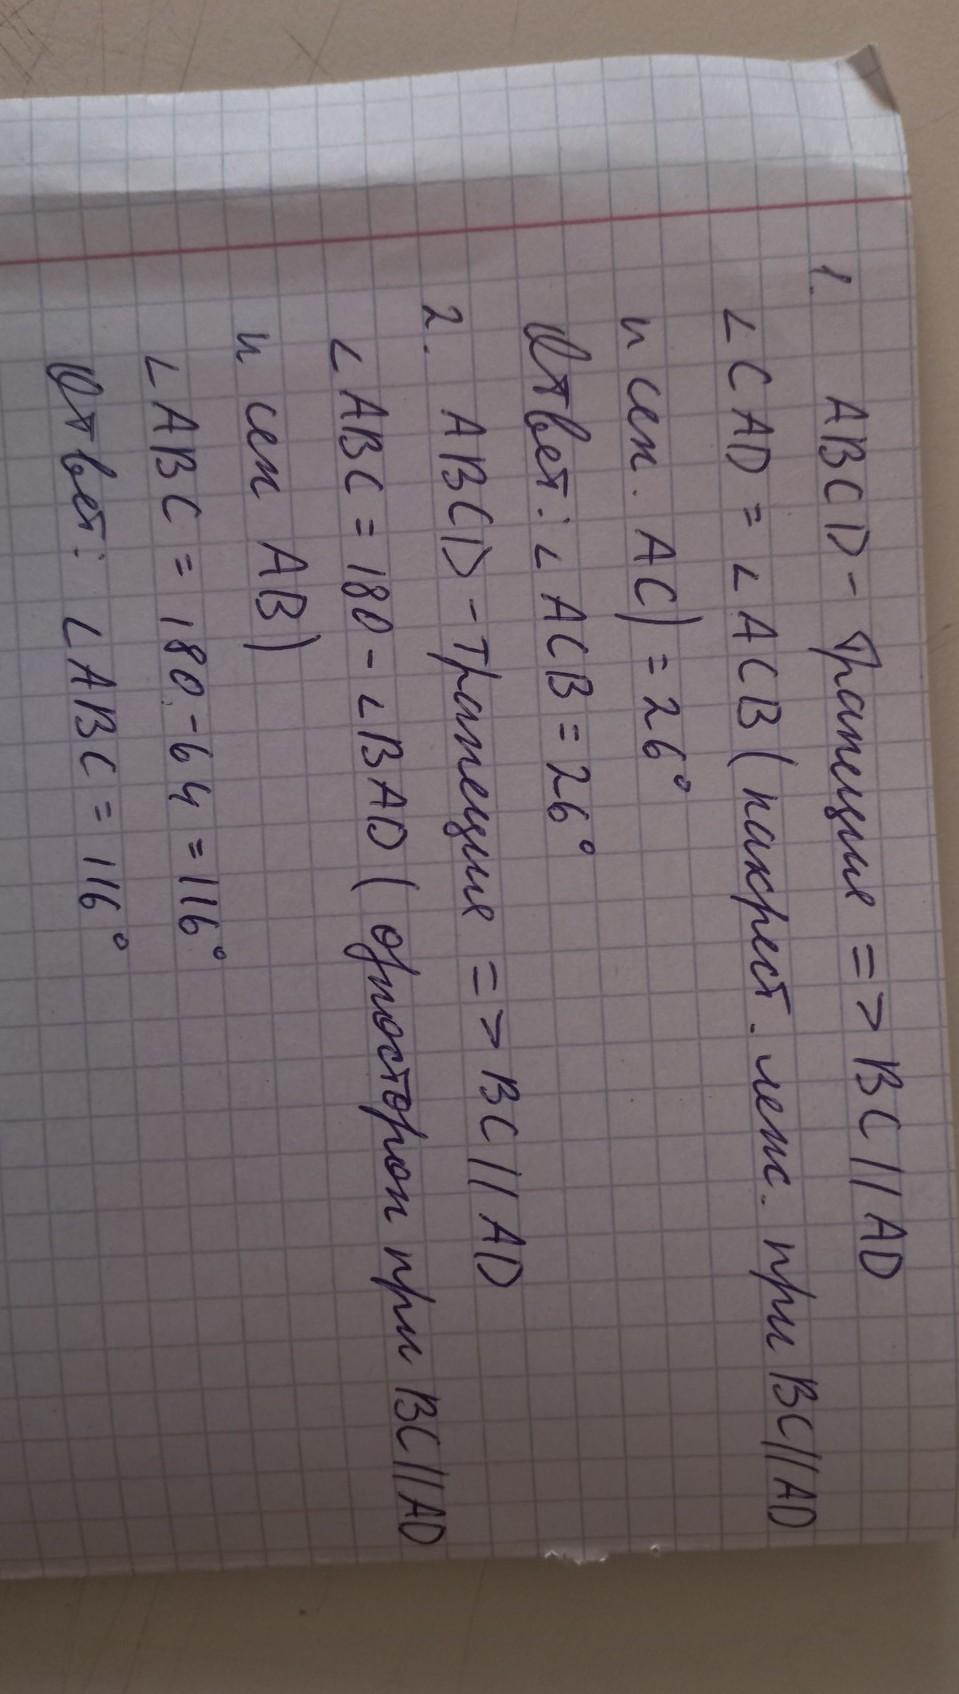 1. ABCD - Трапеция => BC || AD
∠CAD = ∠ACB (накрест. леж. при BC || AD
и сек. AC) = 26°
Ответ: ∠ACB = 26°
2. ABCD - трапеция => BC || AD
∠ABC = 180 - ∠BAD (односторон при BC || AD
и сек AB)
∠ABC = 180 - 64 = 116°
Ответ: ∠ABC = 116°